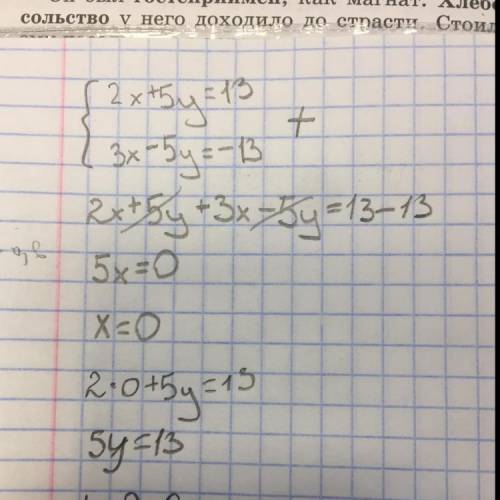 гостеприимен, как магнат. Хлебо
сольство у него доходило до страсти. Стоил
{ 2x+5y=13
3x-5y=-13 +
2x+5y+3x-5y=13-13
5x=0
x=0
2·0+5y=13
5y=13